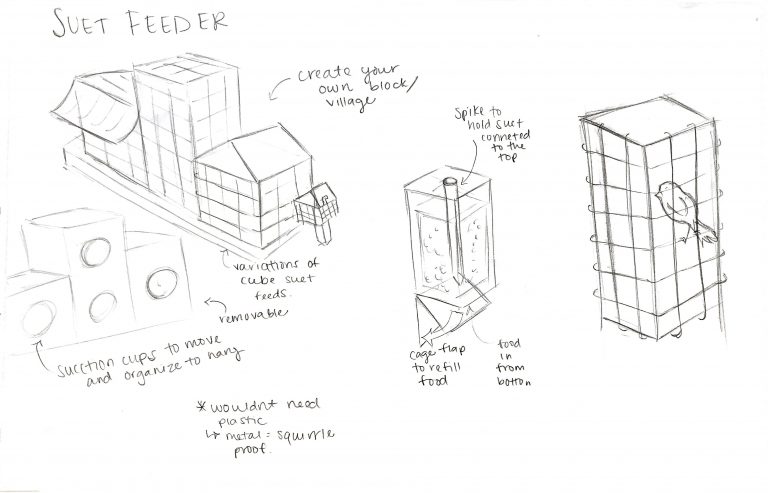 SUET FEEDER
create your
own block/
village
Spike to
hold suet
conneted
to the
top
variations of
cube suet
feeds.
removable
suction cups to move
and organize to hang
cage flap
to refill
food
food
in
from
botton
* wouldnt need
plastic
↳ metal = squirrle
proof.